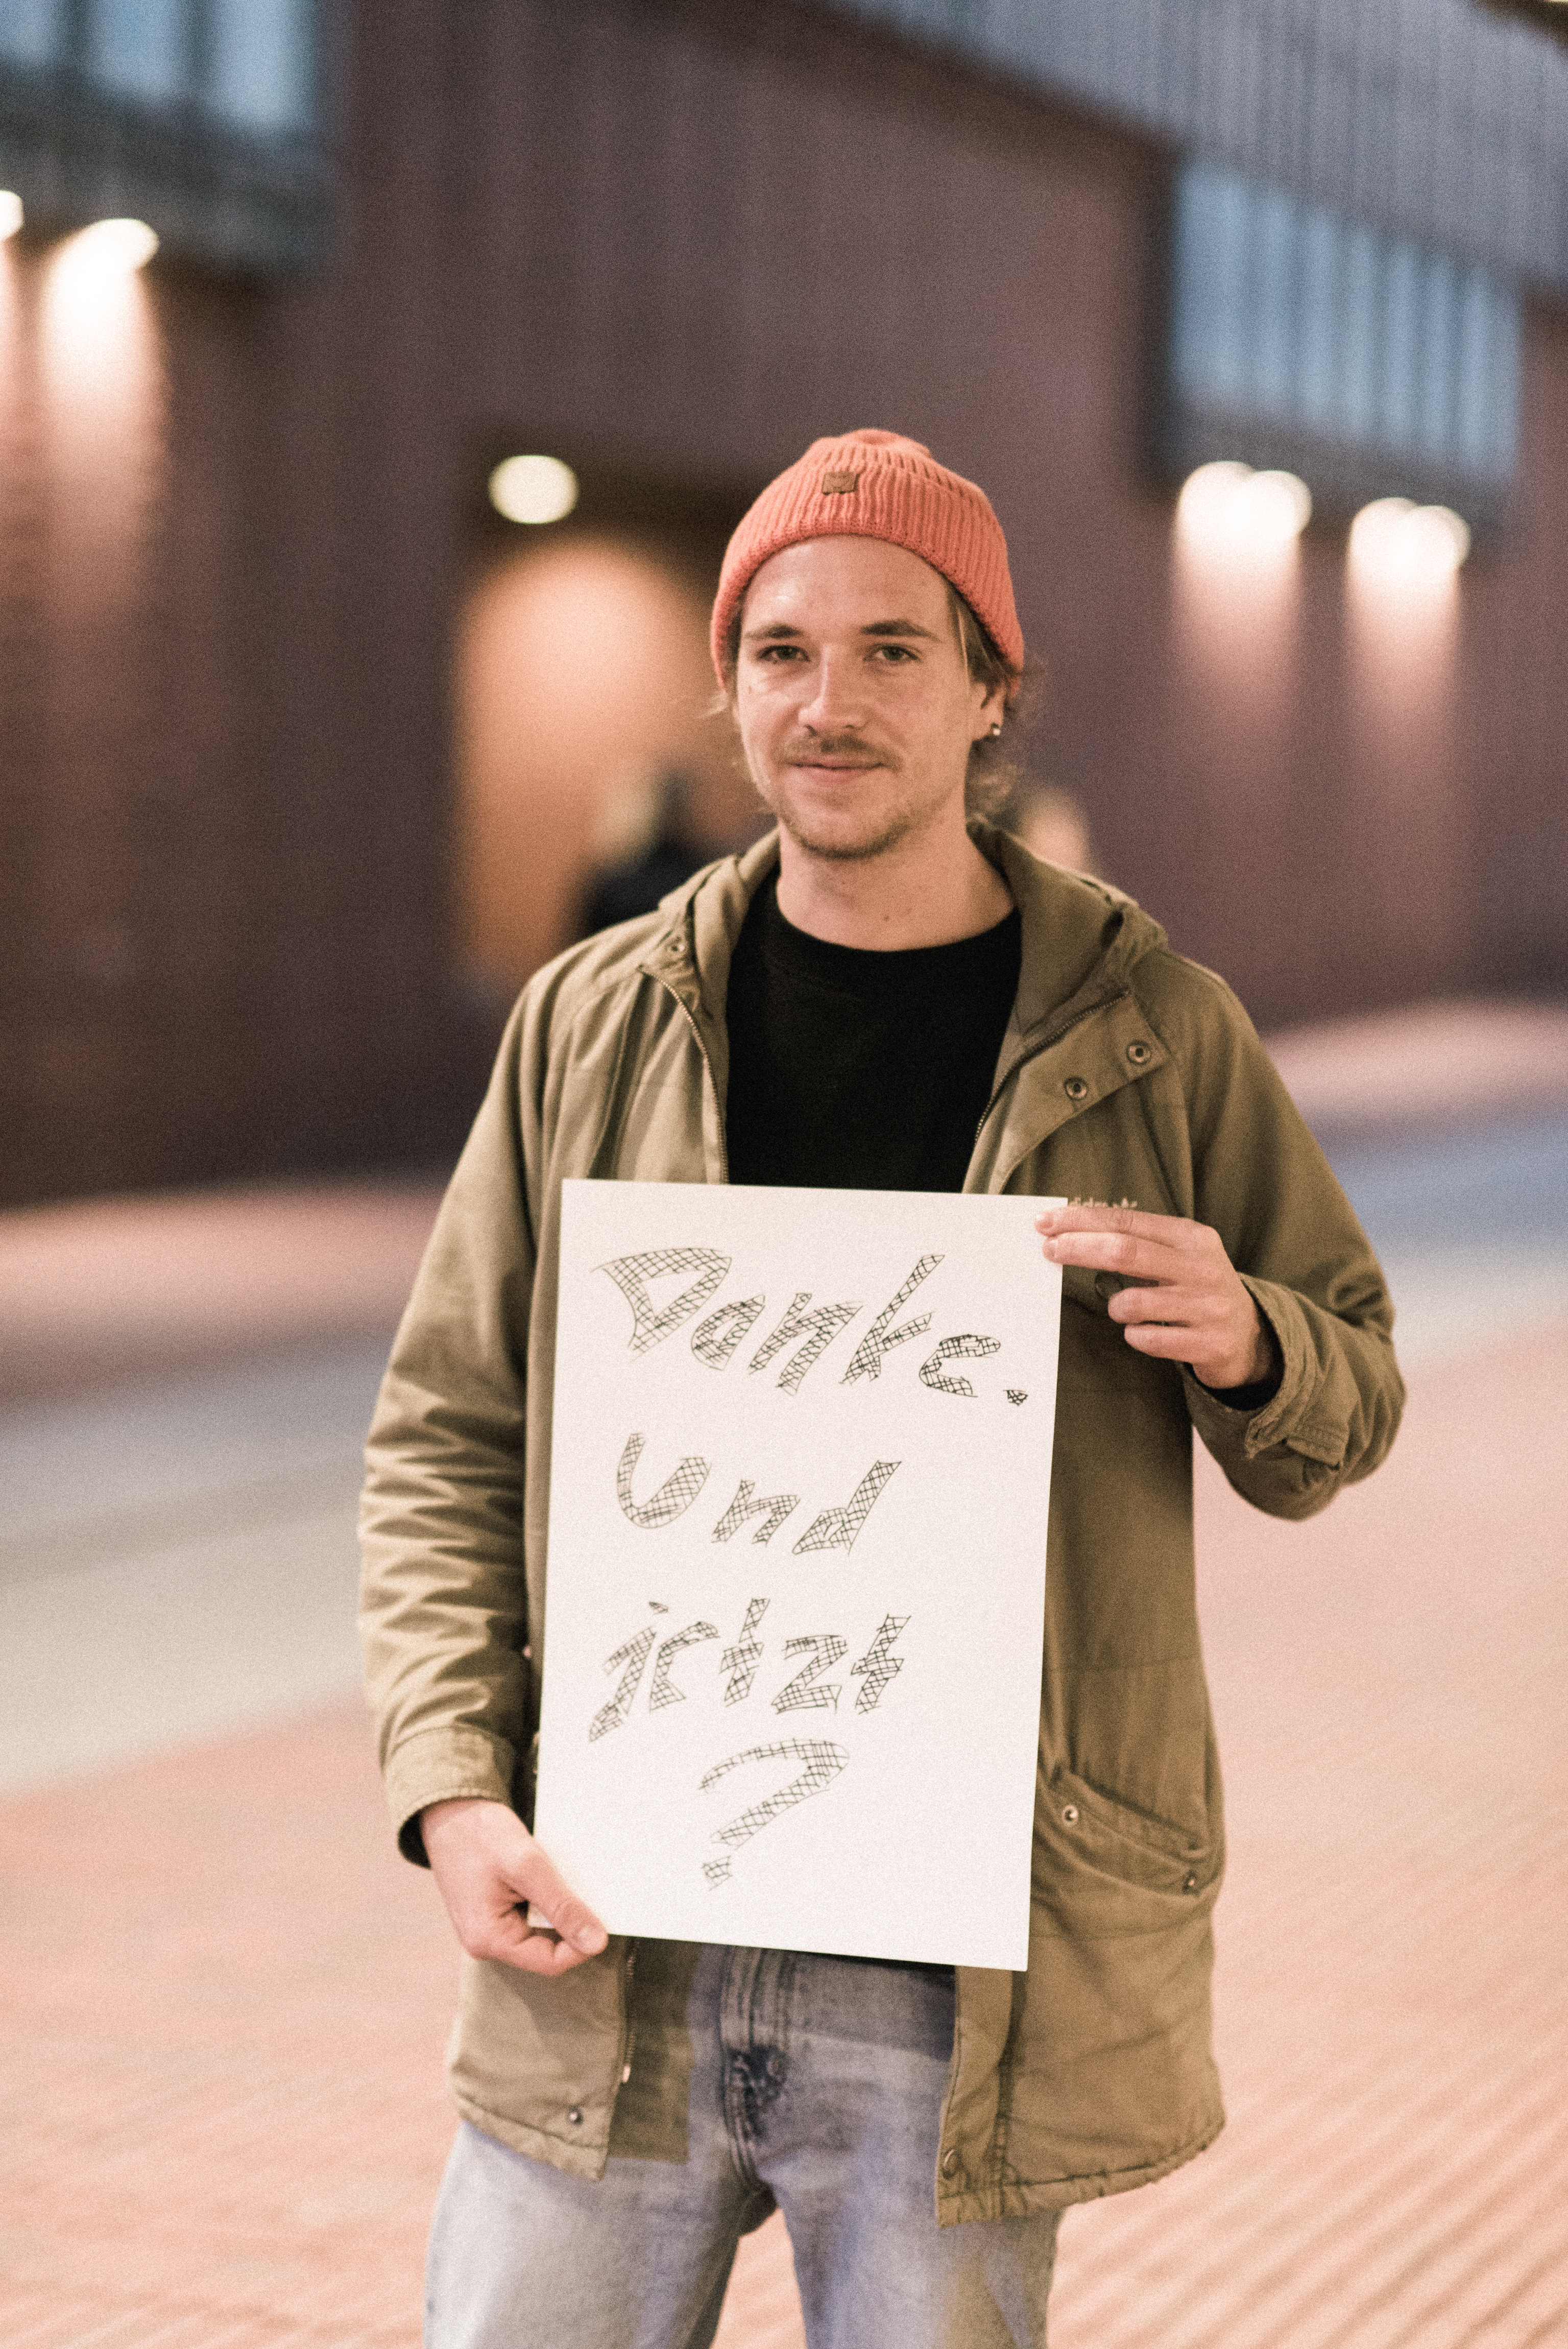 Danke.
Und
jetzt
?